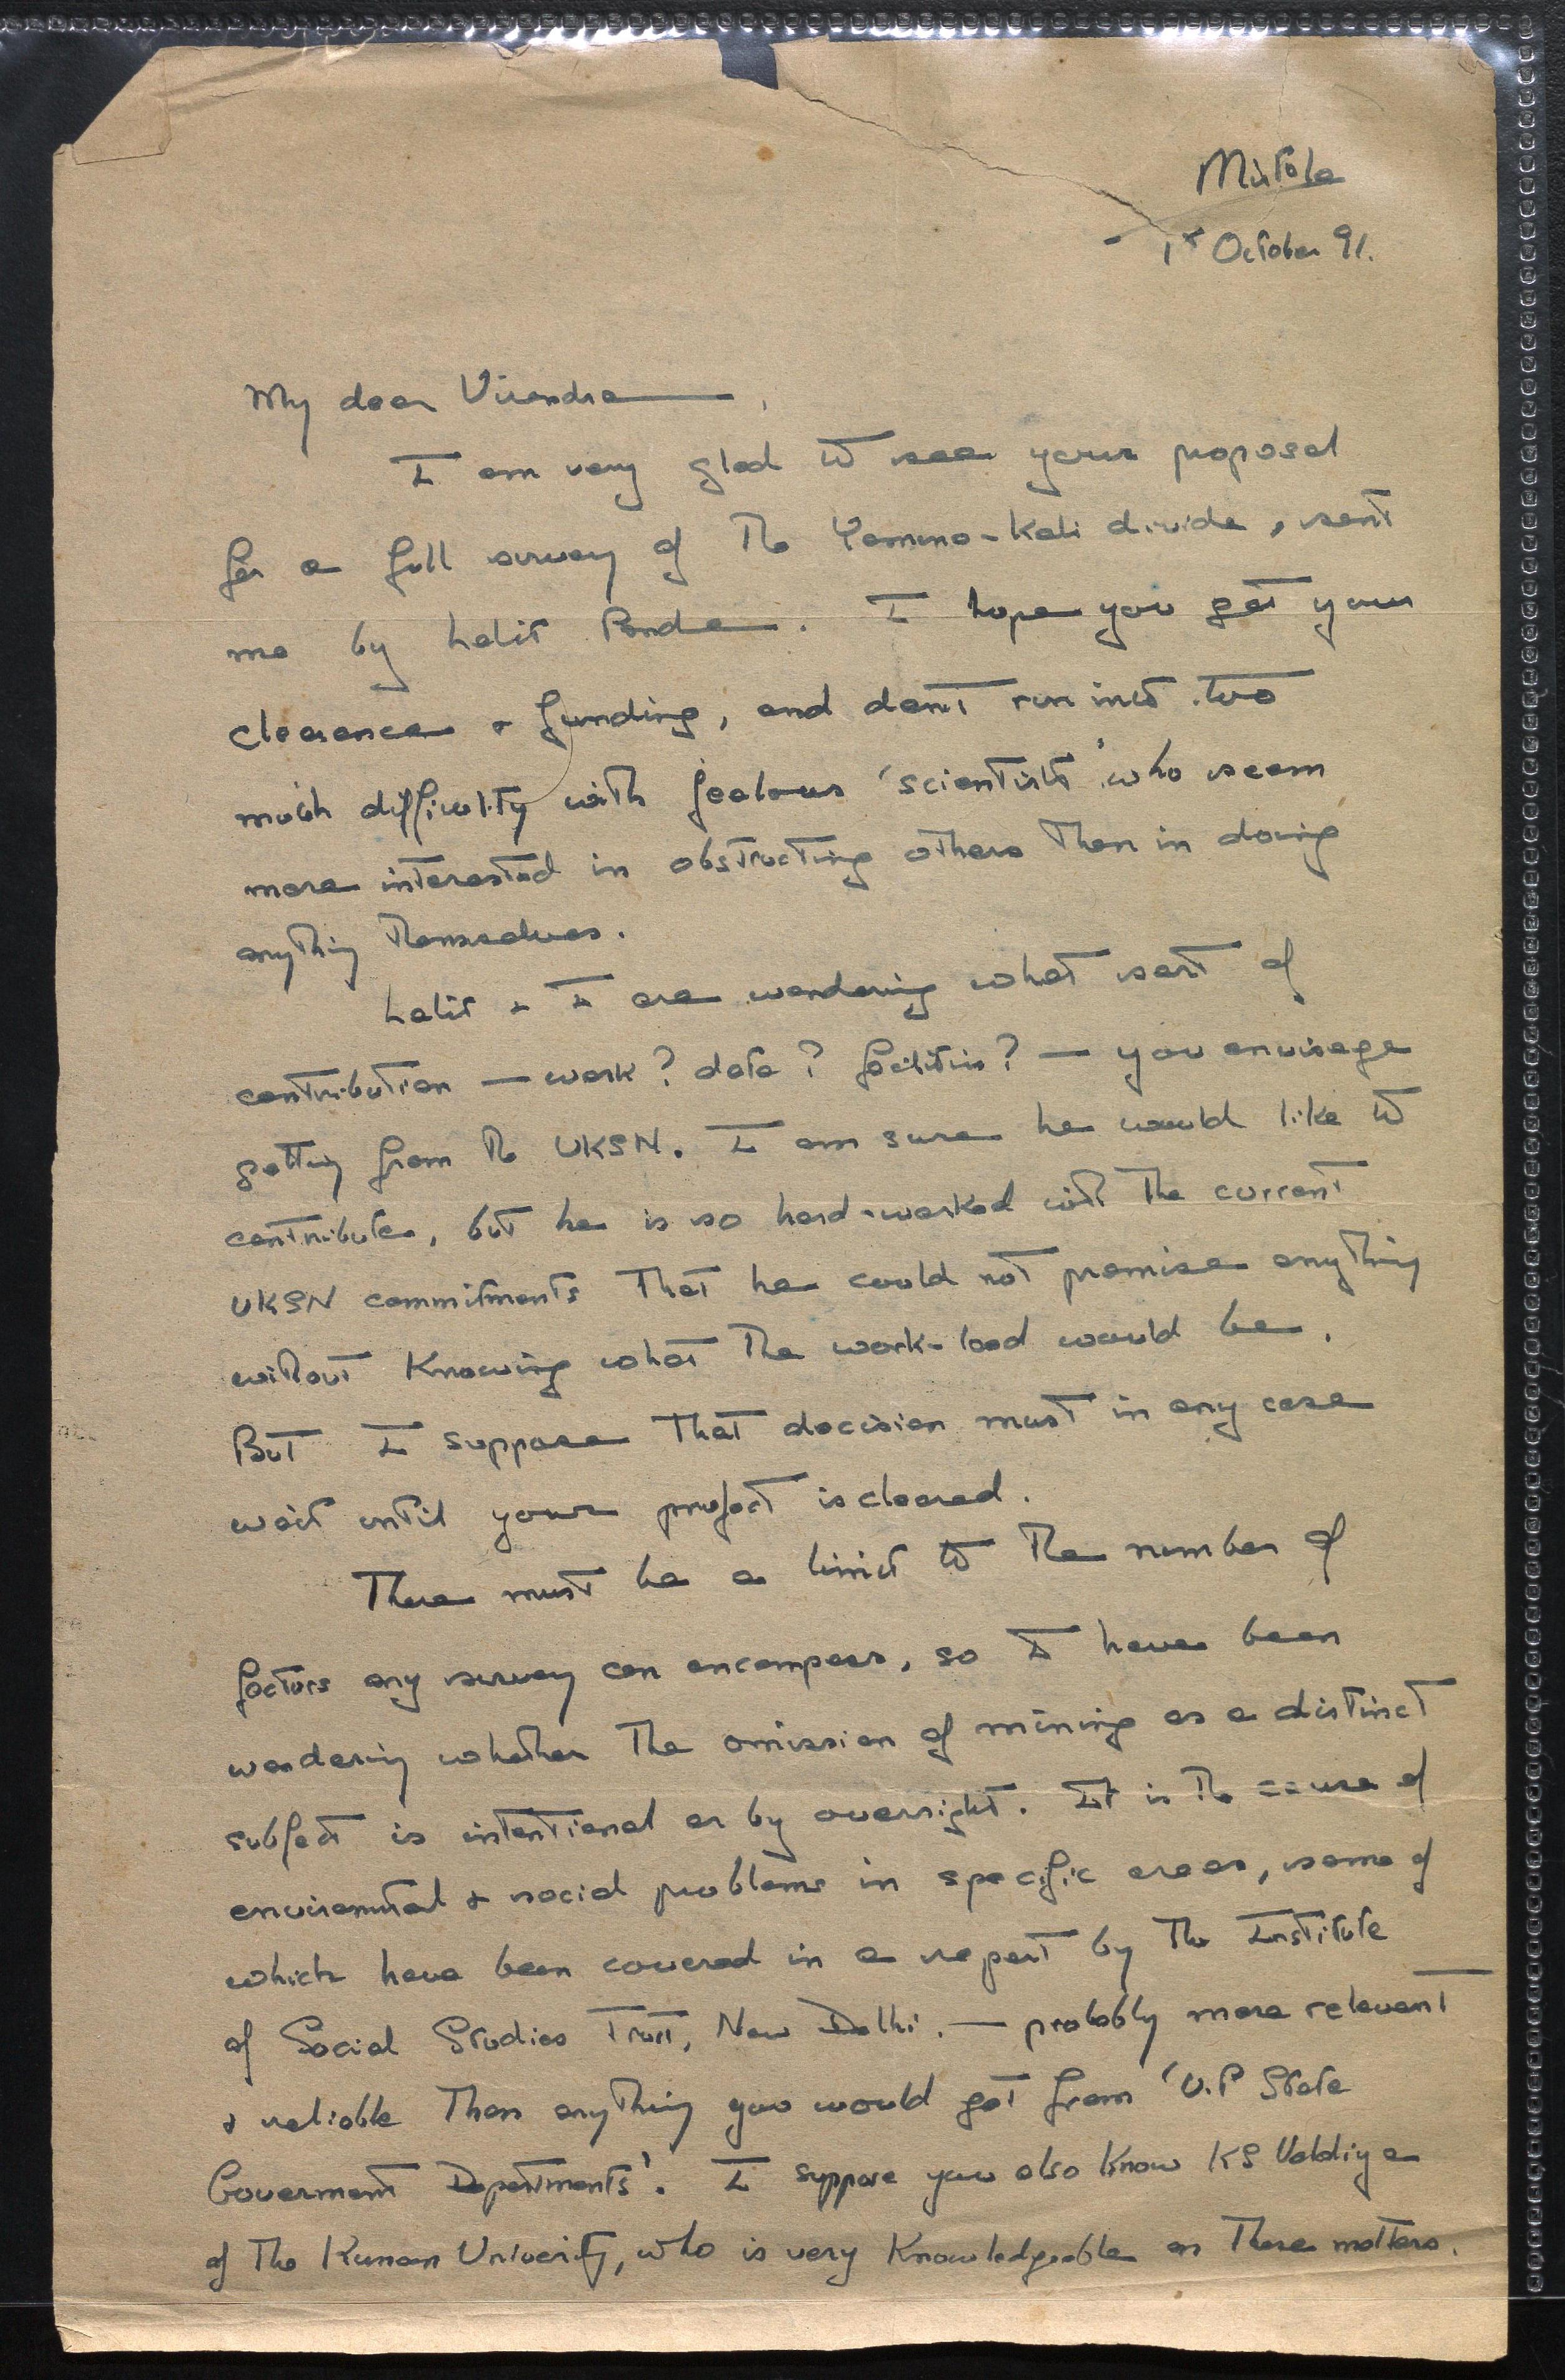 Mirtola
1st October 91.
My dear Virendra,
I am very glad to see your proposal
for a full survey of the Yamuna-Kali divide, sent
me by Lalit Pande. I hope you get your
clearance & funding, and don't run into too
much difficulty with jealous 'scientists' who seem
more interested in obstructing others than in doing
anything themselves.
Lalit & I are wondering what sort of
contribution — work? data? facilities? — you envisage
getting from the UKSN. I am sure he would like to
contribute, but he is so hard-worked with the current
UKSN commitments that he could not promise anything
without knowing what the work-load would be.
But I suppose that decision must in any case
wait until your project is cleared.
There must be a limit to the number of
factors any survey can encompass, so I have been
wondering whether the omission of mining as a distinct
subject is intentional or by oversight. It is the cause of
enviromental & social problems in specific areas, some of
which have been covered in a report by the Institute
of Social Studies Trust, New Delhi. — probably more relevant
& reliable than anything you would get from 'U.P State
Goverment Departments'. I suppose you also know KS Valdiya
of the Kumaon University, who is very knowledgeable on these matters.